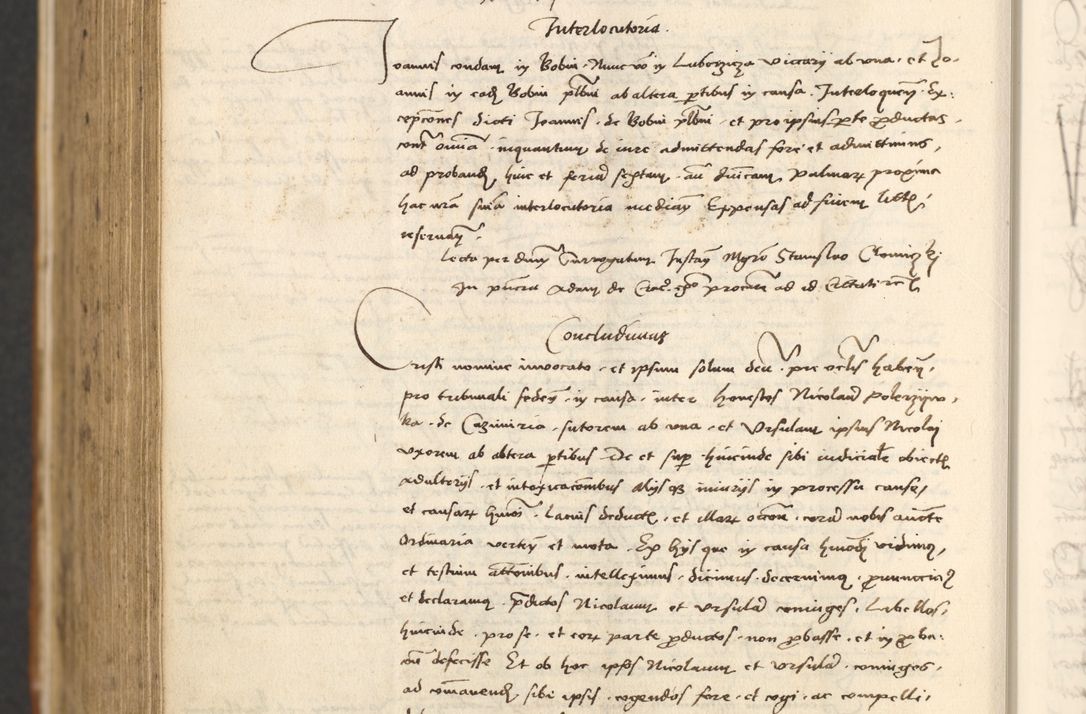 Interlocutoria.
Joannis condam in Bobin. Nunc vo in Luborzicza viccarii ab una. et Jo-
annis in eadem Bobin plbni ab altera ptibus in causa. Interloquen. Ex-
cepcones dicti Joannis. de Bobin plbni. et pro ipsius pte productas.
cont omia. inquantum de iure admittendas fore. et admittimus,
ad proband hinc et feria sextam. an dnicam Palmar proxima
hac nra snia interlocutoria median Expensas ad finem litis
reservan.
Lecta per dnum Surrogatum Instan Mgro Stanislao
In pntia Adam de Crac procur ad id
Concludimus
Cristi nomine invocato. et ipsum solum deu. pre oclis haben.
pro tribunali seden. in causa. inter honestos Nicolau Polerziiw-
ka. de Cazimiria. sutorem ab una. et Ursulam ipsius Nicolai
uxorem ab altera ptibus De et sup. hincinde sibi iudicialr obiectis
adulteriis. et intoxicaconibus aliisq iniuriis in processu cause,
et causar hmoi. Lacius deductis. et illar occone. cora nobis aucte
Ordinaria verten et mota. Ex hiis que in causa hmodi vidimus,
et testium attonibus. intelleximus. dicimus. decernimus. pronunciam
et declaramus. pdictos Nicolaum et Ursula coniuges. Libellos,
hincinde. pro se. et eor parte productos. non probasse. et in proba-
one defecisse Et ob hoc ipsos Nicolaum et Ursula. coniuges.
ad comanend sibi ipsis. cogendos fore. et cogi. ac compelli.